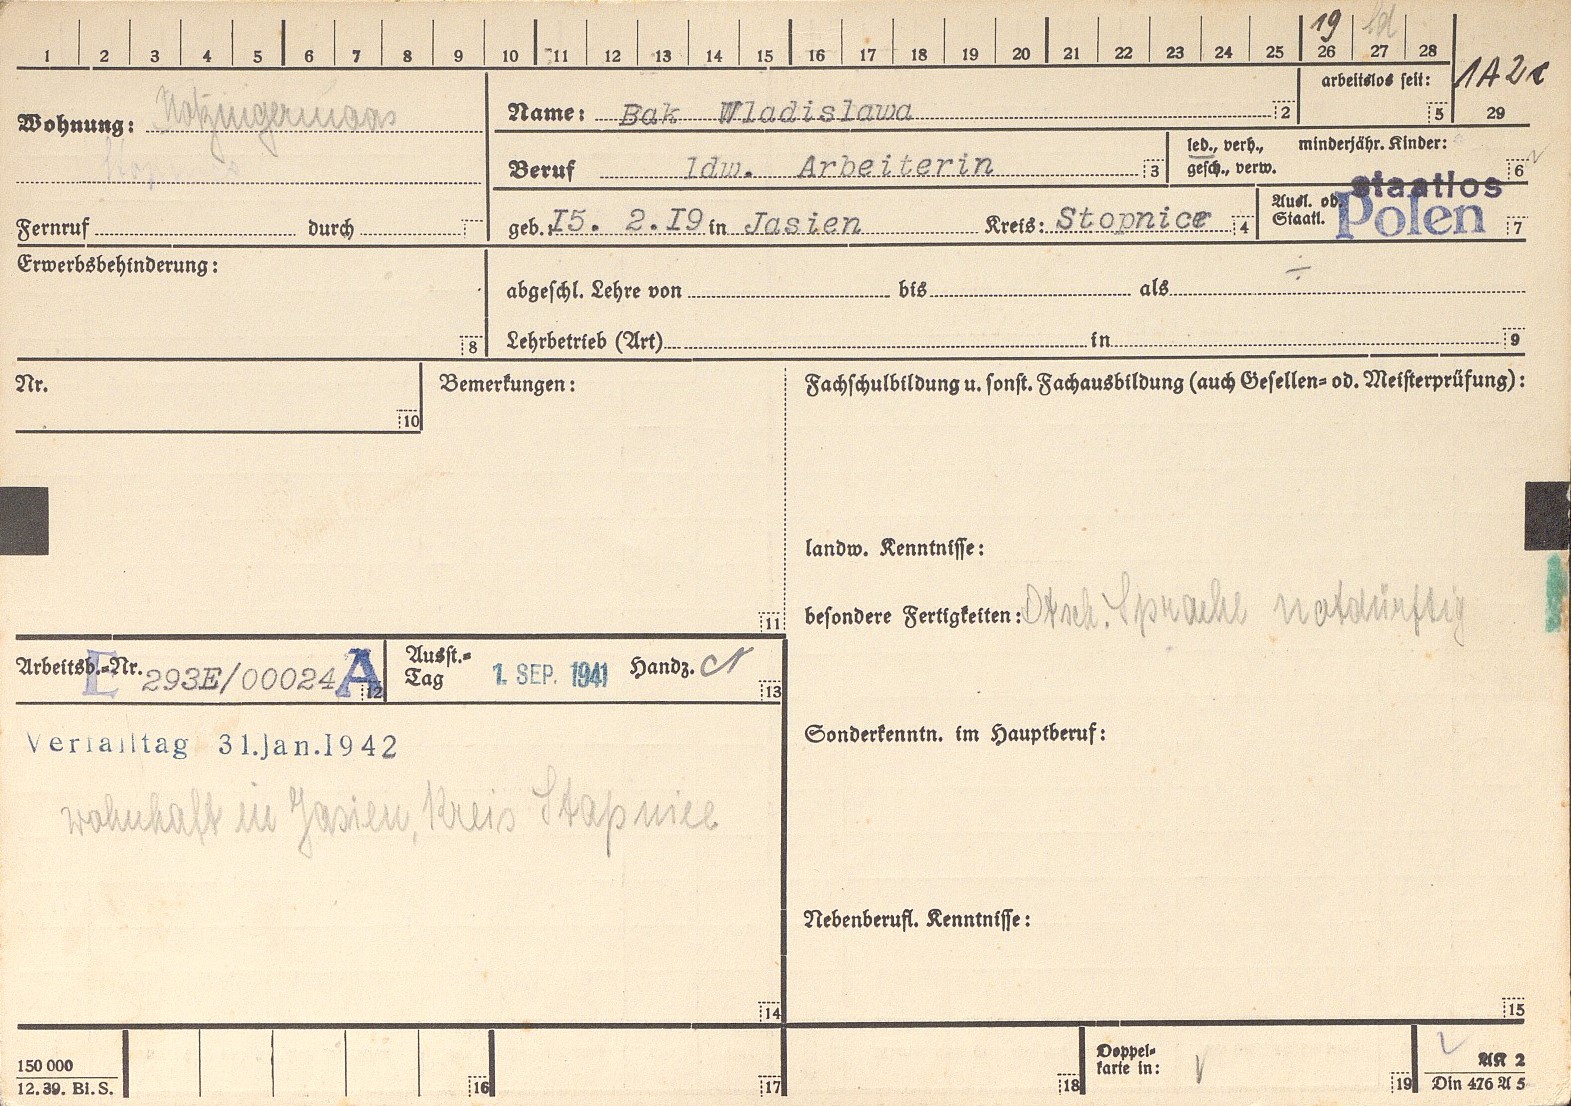 19 ld
1 2 3 4 5 6 7 8 9 10 11 12 13 14 15 16 17 18 19 20 21 22 23 24 25 26 27 28
arbeitslos seit: 5
1A2c
29
Wohnung: Notzingermoos
Name: Bak Wladislawa 2
Beruf ldw. Arbeiterin 3
led., verh., minderjähr. Kinder:
gesch., verw. 6
Fernruf durch
geb.: I5. 2.I9 in Jasien Kreis: Stopnice 4
Ausl. od. Staatl. staatlos
Polen 7
Erwerbsbehinderung: 8
abgeschl. Lehre von bis als ÷
Lehrbetrieb (Art) in 9
Nr. 10
Bemerkungen: 11
Fachschulbildung u. sonst. Fachausbildung (auch Gesellen- od. Meisterprüfung):
landw. Kenntnisse:
besondere Fertigkeiten: Dtsch. Sprache notdürftig
Arbeitsb.-Nr. E 293E/00024 A 12
Ausst.-Tag 1. SEP. 1941 Handz. 13
Verfalltag 31.Jan.1942
wohnhaft in Jasien, Kreis Stapnice
14
Sonderkenntn. im Hauptberuf:
Nebenberufl. Kenntnisse:
15
150 000
12. 39. Bi. S.
16 17 18
Doppel-
karte in: 19
AK 2
Din 476 A 5